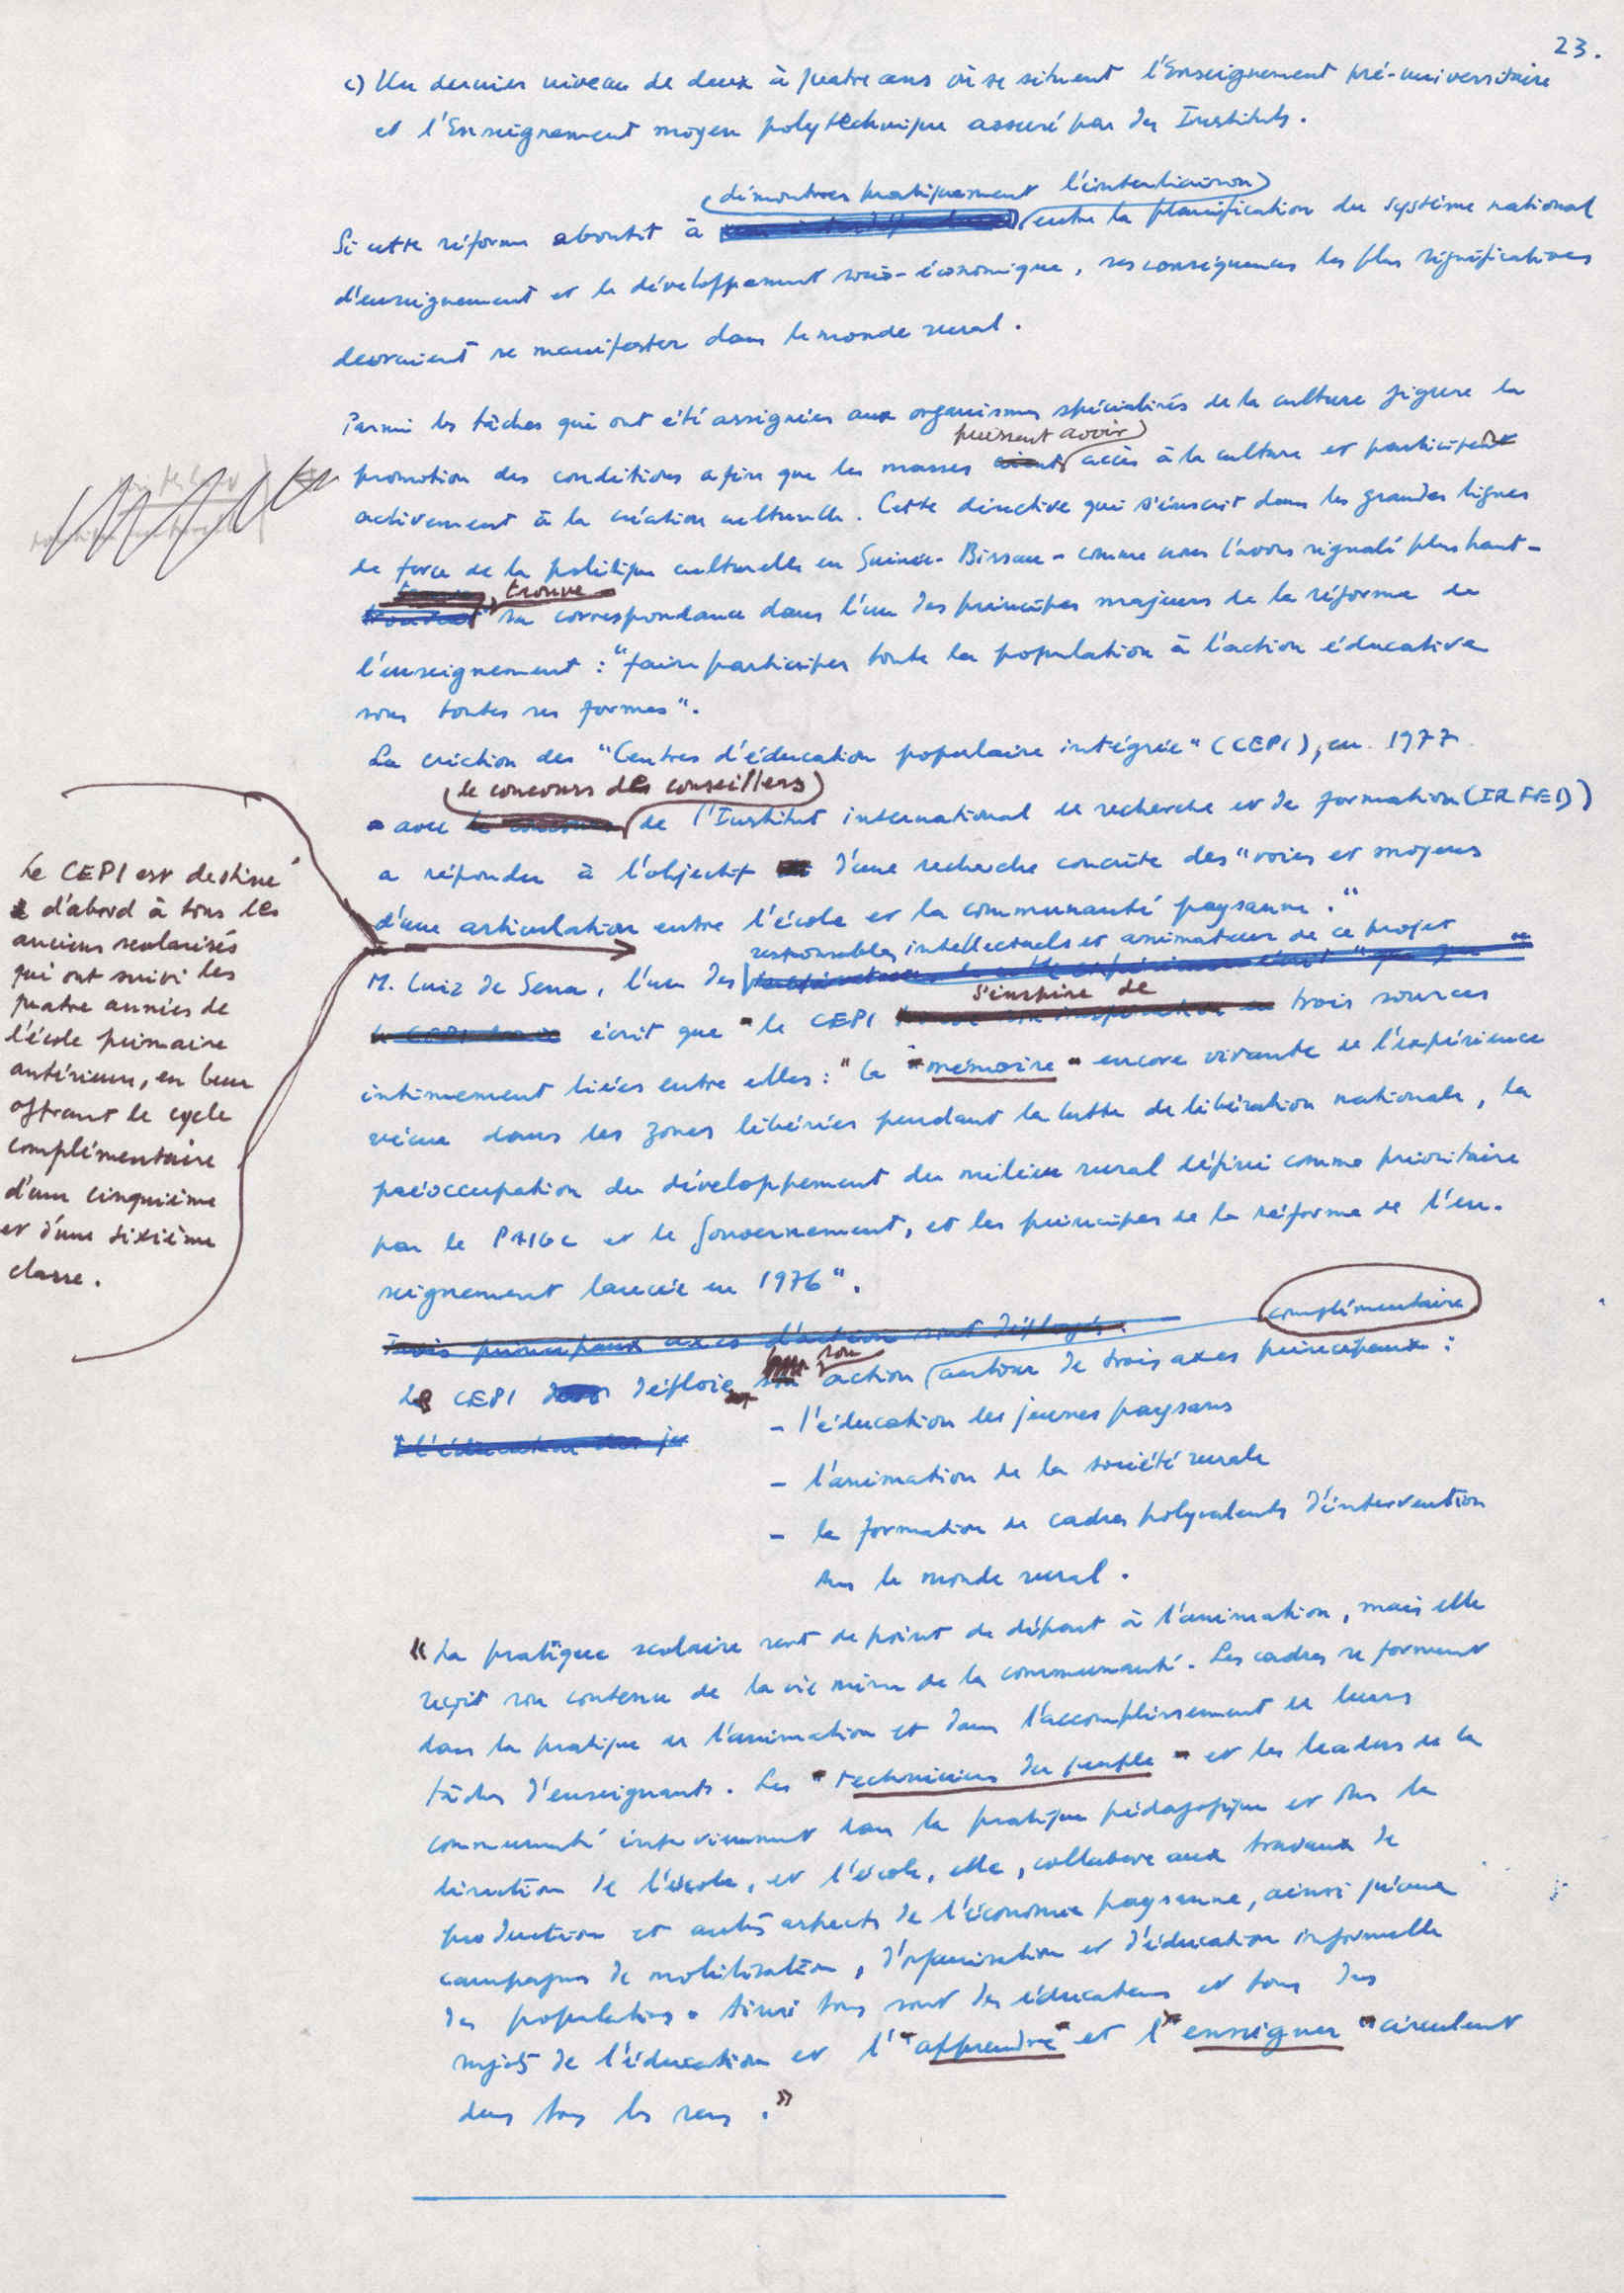 23.
c) Un dernier niveau de deux à quatre ans où se situent l'Enseignement pré-universitaire
et l'Enseignement moyen polytechnique assuré par des Instituts.
démontrer pratiquement l'interliaison
Si cette réforme aboutit à entre la planification du système national
d'enseignement et le développement socio-économique, ses conséquences les plus significatives
devraient se manifester dans le monde rural.
Parmi les tâches qui ont été assignées aux organismes spécialisés de la culture figure la
puissent avoir
promotion des conditions afin que les masses aient accès à la culture et participent
activement à la création culturelle. Cette directive qui s'inscrit dans les grandes lignes
de force de la politique culturelle en Guinée-Bissau - comme nous l'avons signalé plus haut -
trouve
sa correspondance dans l'un des principes majeurs de la réforme de
l'enseignement : "faire participer toute la population à l'action éducative
sous toutes ses formes".
La création des "Centres d'éducation populaire intégrée" (CEPI), en 1977
le concours des conseillers
- avec le concours de l'Institut international de recherche et de formation (IRFED)
a répondu à l'objectif d'une recherche concrète des "voies et moyens
d'une articulation entre l'école et la communauté paysanne."
responsables intellectuels et animateur de ce projet
M. Luiz de Sena, l'un des
s'inspire de
le CEPI écrit que "le CEPI trois sources
intimement liées entre elles : "la "mémoire" encore vivante de l'expérience
vécue dans les zones libérées pendant la lutte de libération nationale, la
préoccupation du développement du milieu rural défini comme prioritaire
par le PAIGC et le Gouvernement, et les principes de la réforme de l'en-
seignement lancée en 1976".
Le CEPI est destiné
d'abord à tous les
anciens scolarisés
qui ont suivi les
quatre années de
l'école primaire
antérieure, en leur
offrant le cycle
complémentaire
d'une cinquième
et d'une sixième
classe.
Trois principaux axes d'action sont déployés.
complémentaire
son
Le CEPI déploie son action autour de trois axes principaux :
l'éducation des je
- l'éducation des jeunes paysans
- l'animation de la société rurale
- la formation de cadres polyvalents d'intervention
dans le monde rural.
"La pratique scolaire sert de point de départ à l'animation, mais elle
reçoit son contenu de la vie même de la communauté. Les cadres se forment
dans la pratique de l'animation et dans l'accomplissement de leurs
tâches d'enseignants. Les "techniciens du peuple" et les leaders de la
communauté interviennent dans la pratique pédagogique et dans la
direction de l'école, et l'école, elle, collabore aux travaux de
production et autres aspects de l'économie paysanne, ainsi qu'aux
campagnes de mobilisation, d'organisation et d'éducation informelle
des populations. Ainsi tous sont des éducateurs et tous des
sujets de l'éducation et l'"apprendre" et l'"enseigner" circulent
dans tous les sens."